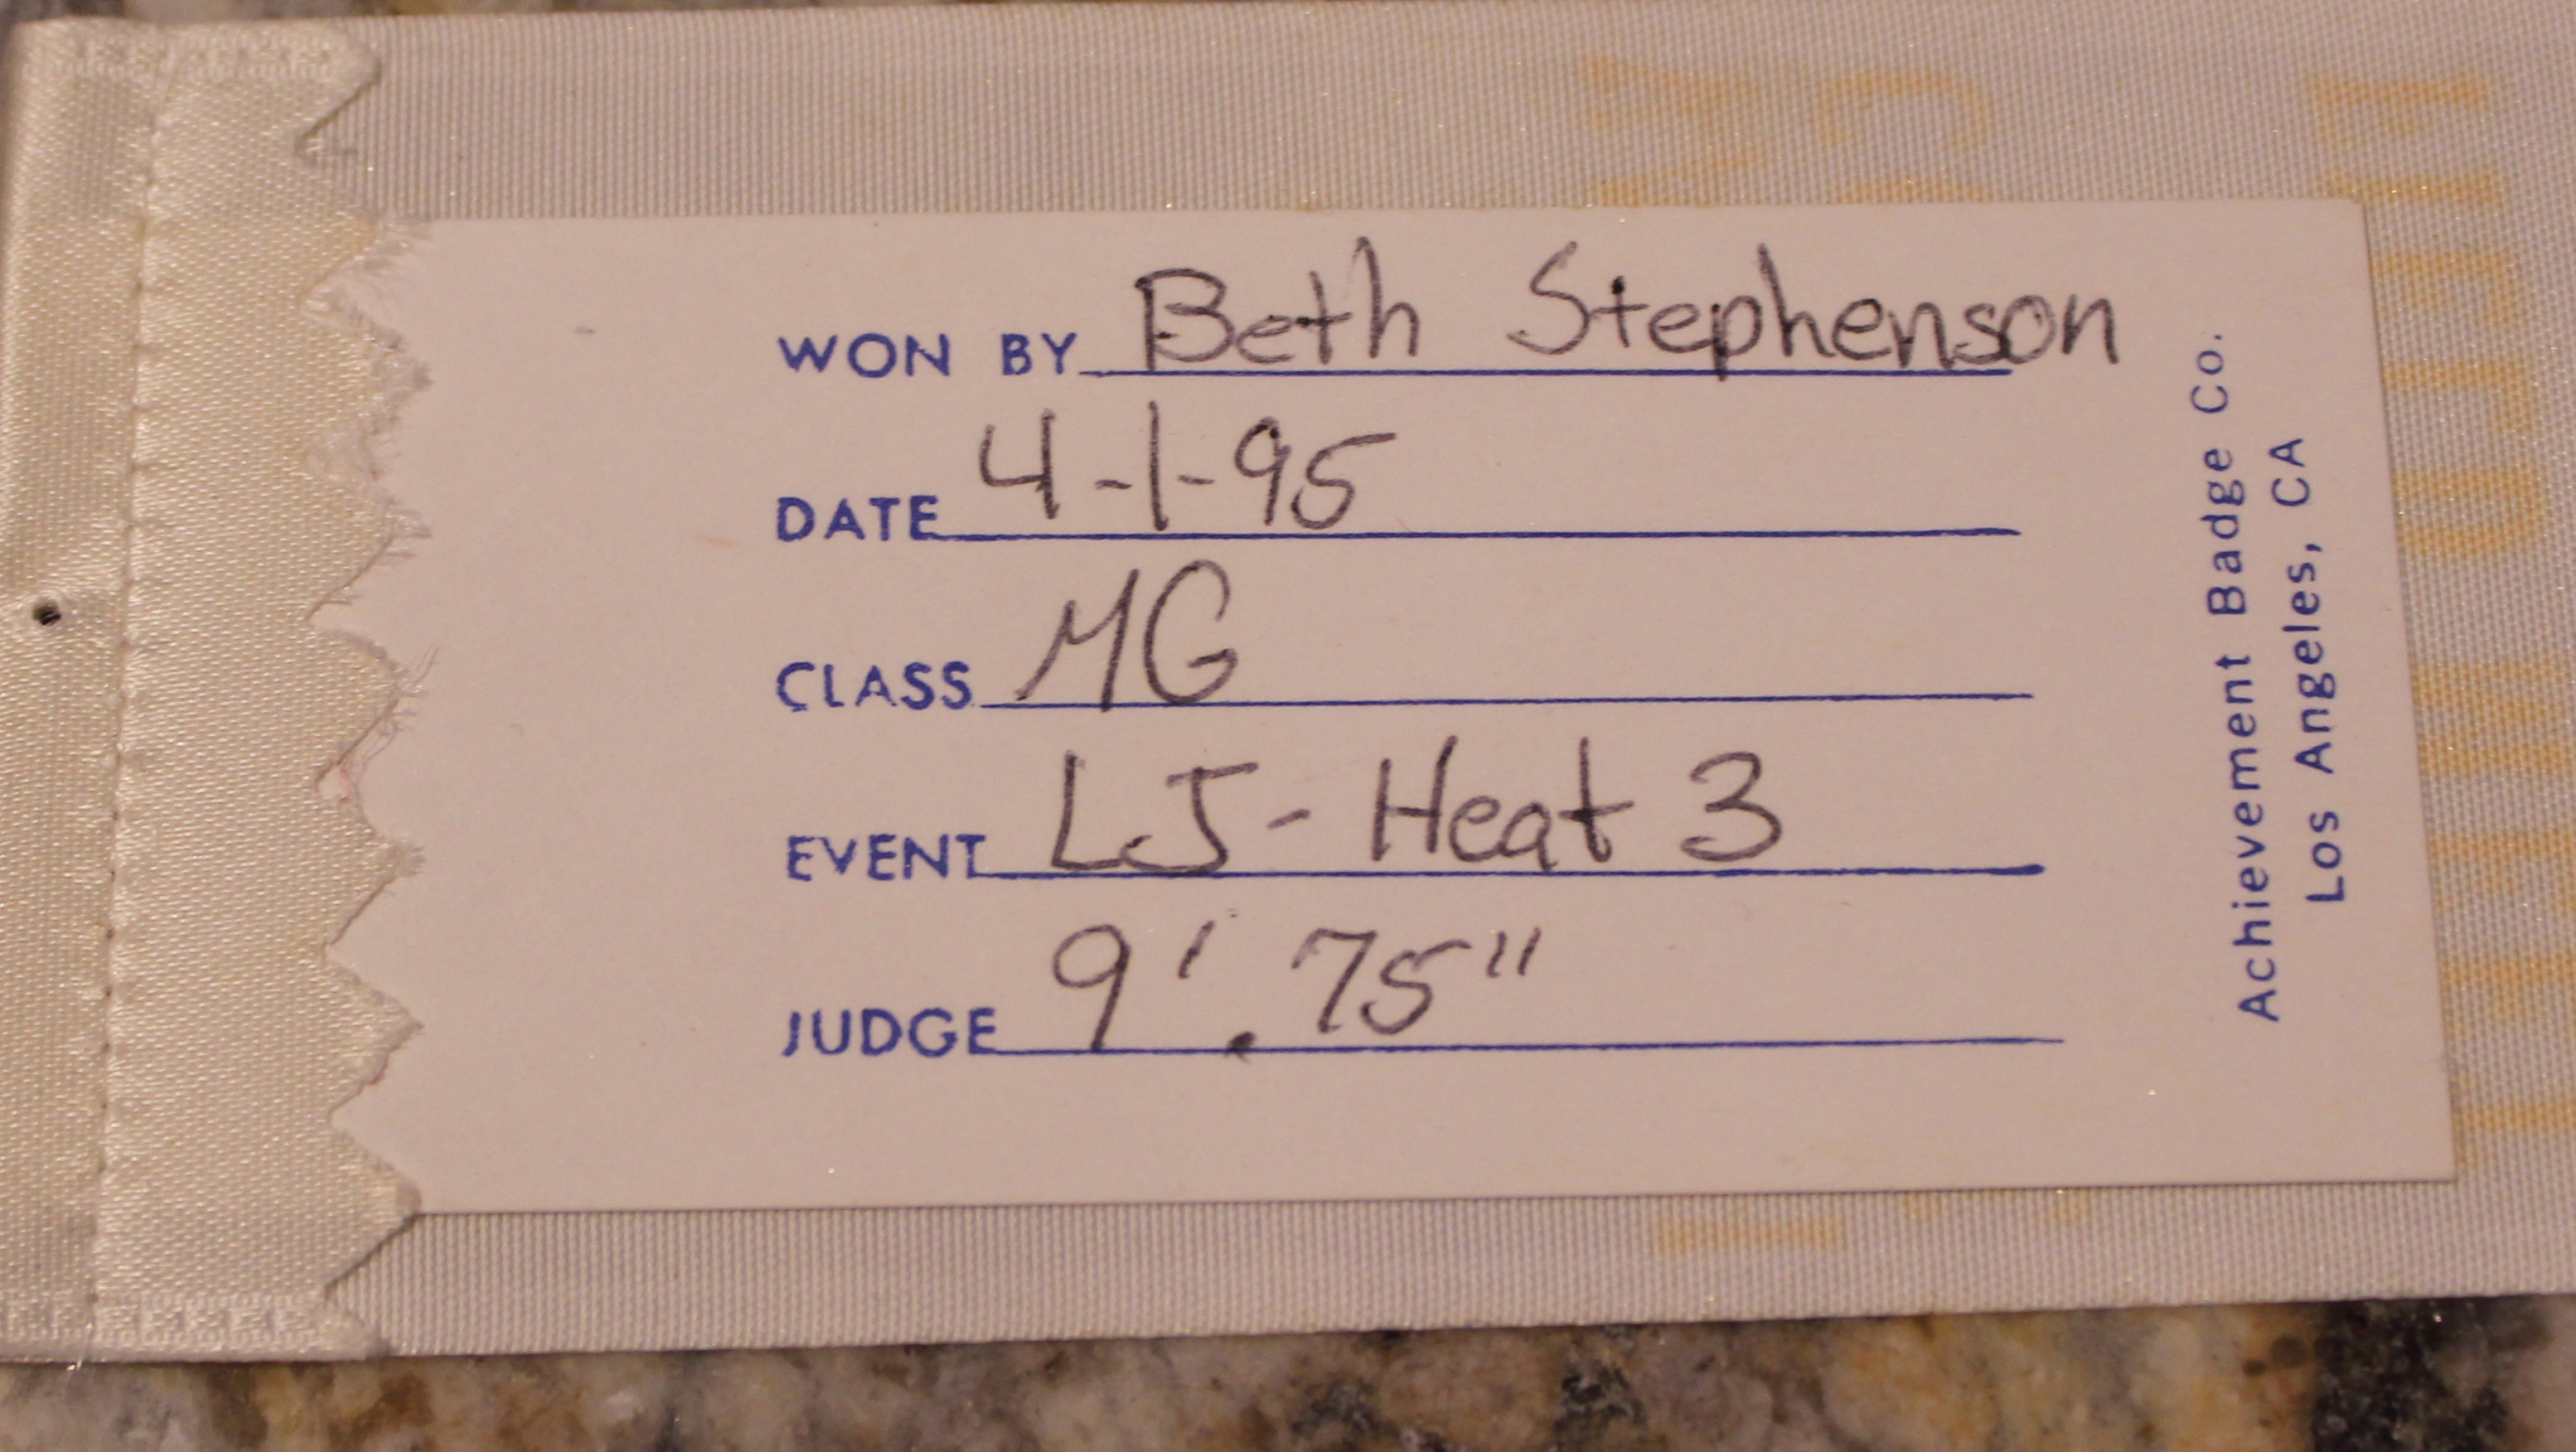 WON BY Beth Stephenson
DATE 4-1-95
CLASS MG
EVENT LJ - Heat 3
JUDGE 9' . 75"
Achievement Badge Co.
Los Angeles, CA